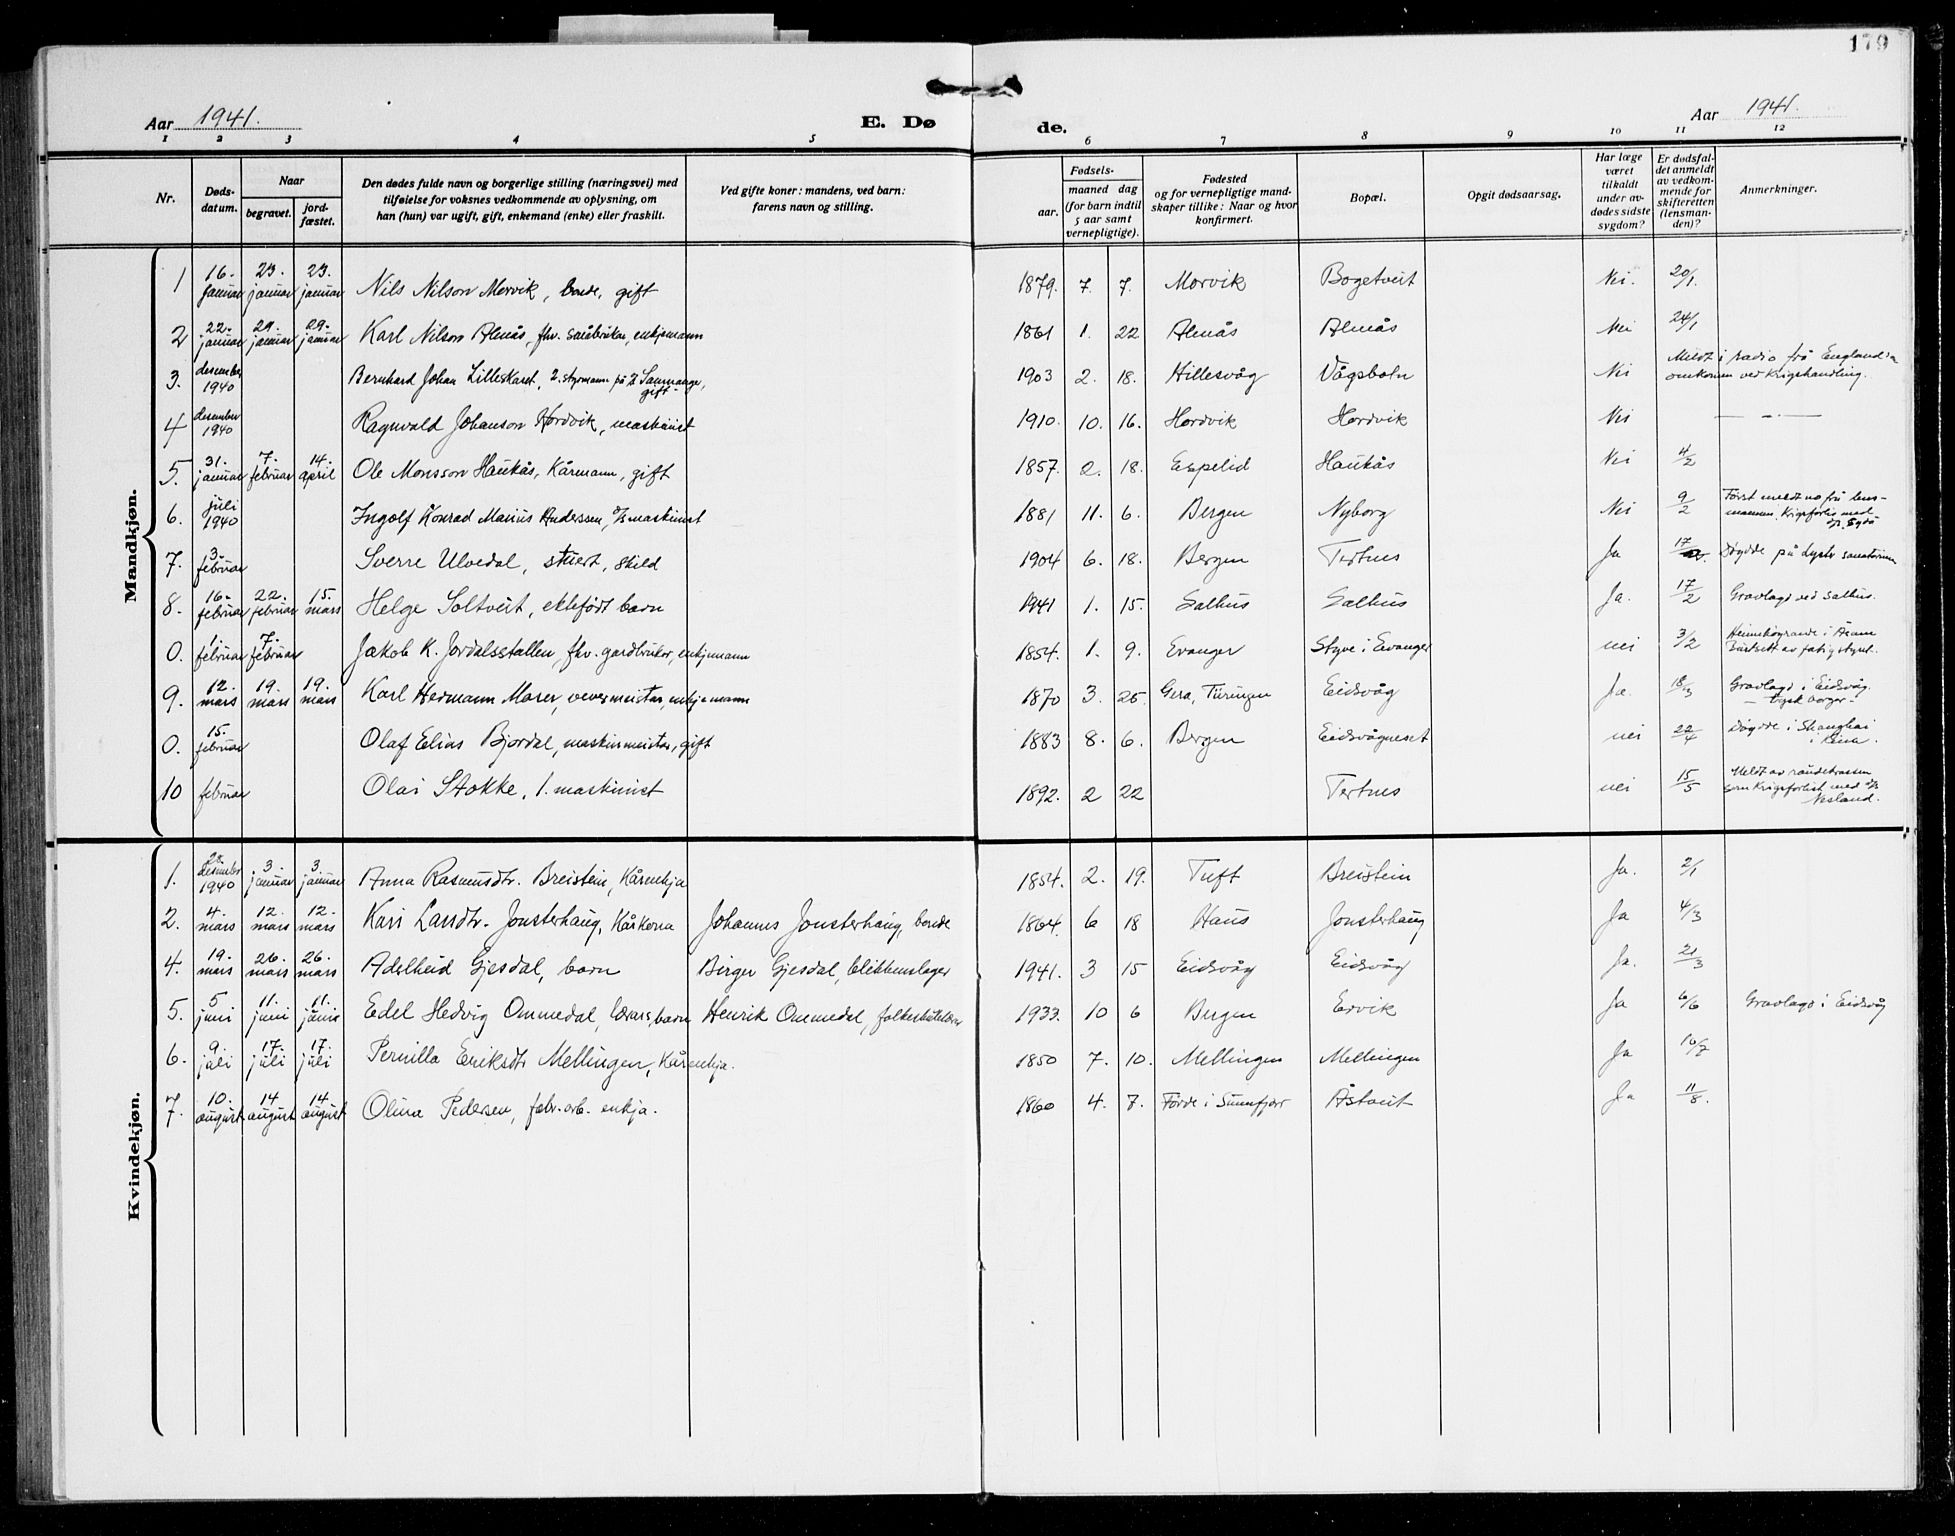 179
Aar 1941.
E. Dø
de.
Aar 1941.
1 2 3 4 5 6 7 8 9 10 11 12
Nr.
Døds-
datum.
Naar
begravet.
jord-
fæstet.
Den dødes fulde navn og borgerlige stilling (næringsvei) med
tilføielse for voksnes vedkommende av oplysning, om
han (hun) var ugift, gift, enkemand (enke) eller fraskilt.
Ved gifte koner: mandens, ved barn:
farens navn og stilling.
Fødsels-
aar.
maaned dag
(for barn indtil
5 aar samt
vernepligtige).
Fødested
og for vernepligtige mand-
skaper tillike: Naar og hvor
konfirmert.
Bopæl.
Opgit dødsaarsag.
Har læge
været
tilkaldt
under av-
dødes sidste
sygdom?
Er dødsfal-
det anmeldt
av vedkom-
mende for
skifteretten
(lensman-
den)?
Anmerkninger.
Mandkjøn.
1 16. januar 23. januar 23. januar Nils Nilson Morvik, bonde, gift 1879. 7. 7. Morvik Bogetveit Nei. 20/1.
2 22. januar 29. januar 29. januar Karl Nilson Almås, fhv. småbruker, enkjemann 1861 1. 22 Almås Almås Nei 24/1
3. desember 1940 Bernhard Johan Lilleskaret, 2. styrmann på Samnanger, gift 1903 2. 18. Hillesvåg Vågsbotn Nei Meldt i radio frå England
omkomen ved krigshandling.
4 desember 1940 Ragnvald Johanson Hordvik, maskinist 1910. 10. 16. Hordvik Hordvik Nei — " —
5. 31. januar 7. februar 14. april Ole Monsson Haukås, Kårmann, gift 1857. 2. 18. Eppelid Haukås Nei 4/2
6. juli 1940 Ingolf Konrad Marius Anderssen, maskinist 1881 11. 6. Bergen Nyborg Nei 9/2 Først meldt no frå lens-
mannen. Krigsforlis med
7. 3. februar Sverre Ulvedal, stuert, skild 1904 6. 18. Bergen Tertnes Ja 17 Døydde på Lyster sanatorium
8. 16. februar 22. februar 15. mars Helge Soltveit, ektefødt barn 1941 1. 15. Salhus Salhus Ja. 17/2 Gravlagd ved Salhus.
0. 1. februar 7. februar Jakob K. Jordalsstallen, fhv. gardbruker, enkjemann 1854. 1. 9. Evanger Styve i Evanger nei 3/2 Heimehøyrande i Åsane
Burtsett av fatigstyret.
9. 12. mars 19. mars 19. mars Karl Hermann Moser, vevermeister, enkjemann 1870 3. 25. Gera, Türingen Eidsvåg Ja. 18/3 Gravlagd i Eidsvåg.
— tysk borger —
0. 15. februar Olaf Elias Bjordal, maskinmeister, gift 1883 8. 6. Bergen Eidsvågneset nei 22/4 Døydde i Shanghai
i Kina.
10 februar Olai Stokke, 1. maskinist 1892. 2 22 Tertnes nei 15/5 Meldt av
som krigsforlist med d/s
Nesland.
Kvindekjøn.
1. 28. desember 1940 3. januar 3. januar Anna Rasmusdtr. Breistein, Kårenkja 1854. 2. 19. Tuft Breistein Ja. 2/1
2. 4. mars 12. mars 12. mars Kari Larsdtr. Jonsterhaug, Kårkona Johannes Jonsterhaug, bonde 1864. 6 18 Haus Jonsterhaug Ja 4/3
4. 19. mars 26. mars 26. mars Adelheid Gjesdal, barn Birger Gjesdal, blikkenslager 1941. 3 15 Eidsvåg Eidsvåg Ja. 21/3
5. 5 juni 11. juni 11. juni Edel Hedvig Ommedal, lærars, barn Henrik Ommedal, folkeskulelærar 1933. 10 6 Bergen Ervik Ja 6/6 Gravlagd i Eidsvåg
6. 9. juli 17. juli 17. juli Pernilla Eriksdtr Mellingen, Kårenkja. 1850 7. 10. Mellingen Mellingen Ja 10/7
7. 10. august 14 august 14. august Olina Pedersen, fabr. arb. enkja. 1860 4. 7. Førde i Sunnfjord Åstveit Ja 11/8.